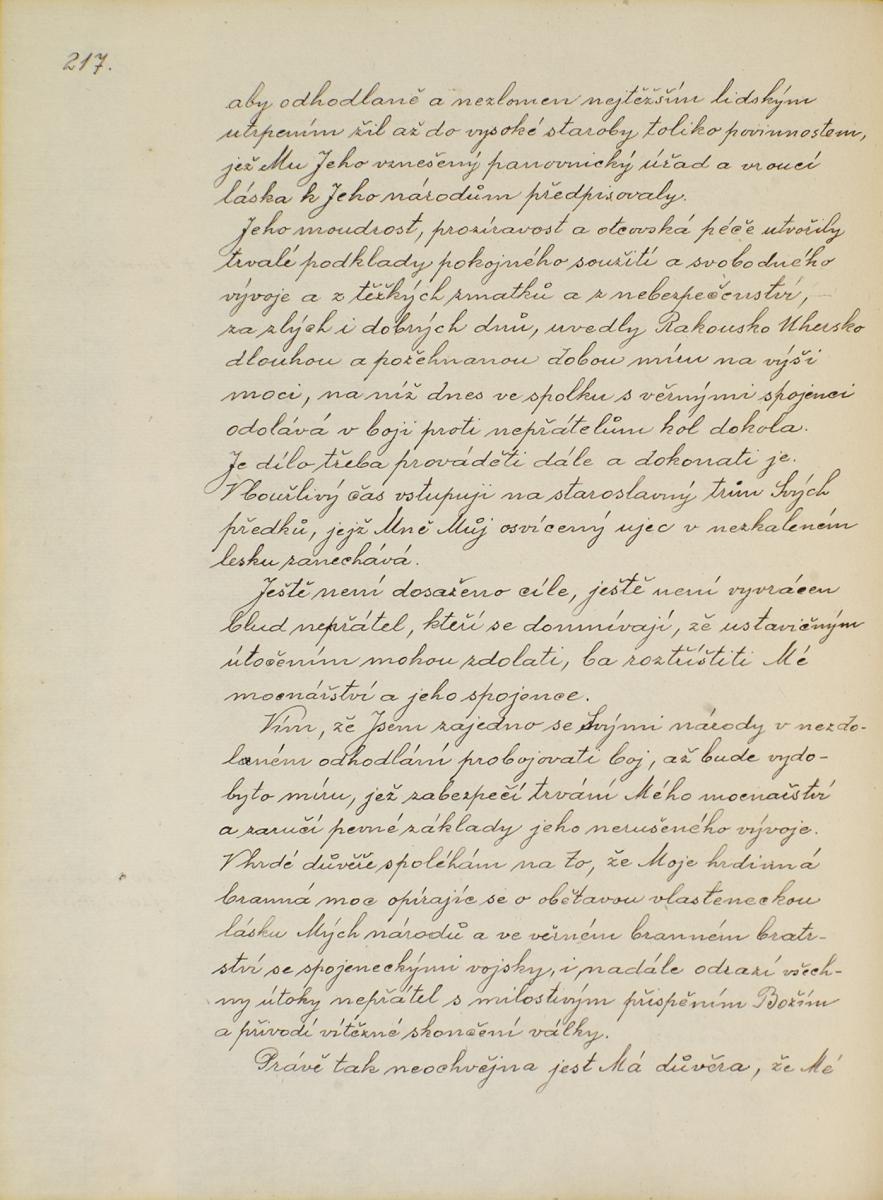 217.
aby odhodlaně a nezlomen nejtěžším lidským
utrpením žil až do vysoké staroby toliko povinnostem,
jež Mu Jeho vznešený panovnický úřad a vroucí
láska k Jeho národům předpisovaly.
Jeho moudrost, prozíravost a otcovská péče utvořily
trvalé podklady pokojného soužití a svobodného
vývoje a z těžkých zmatků a z nebezpečenství,
za zlých i dobrých dnů, uvedly Rakousko Uhersko
dlouhou a požehnanou dobou míru na výši
moci, na níž dnes ve spolku s věrnými spojenci
odolává v boji proti nepřátelům kol dokola.
Je dílo třeba prováděti dále a dokonati je.
V bouřlivý čas vstupuji na staroslavný trůn Svých
předků, jejž Mně Můj osvícený ujec v nezkaleném
lesku zanechává.
Ještě není dosaženo cíle, ještě není vyvrácen
blud nepřátel, kteří se domnívají, že ustavičným
útočením mohou zdolati, ba roztříštiti Mé
mocnářství a jeho spojence.
Vím, že Jsem zajedno se Svými národy v nezdo-
laném odhodlání probojovati boj, až bude vydo-
byto míru, jež zabezpečí trvání Mého mocnařství
a zaručí pevné základy jeho nerušeného vývoje.
V hrdé důvěře spoléhám na to, že Moje hrdinná
branná moc opírajíc se o obětavou vlasteneckou
lásku Mých národů a ve věrném branném bratr-
ství se spojeneckými vojsky, i nadále odrazí všech-
ny útoky nepřátel s milostivým přispěním Božím
a přivodí vítězné skončení války.
Právě tak neochvějna jest Má důvěra, že Mé